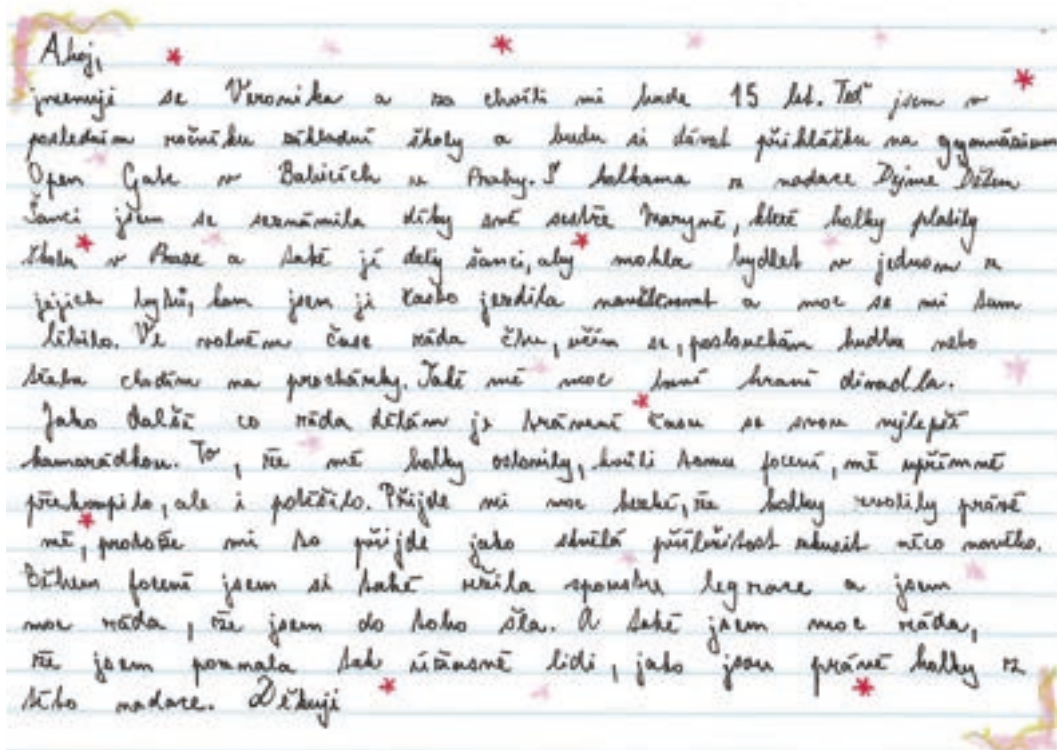 Ahoj,
jmenuji se Veronika a za chvíli mi bude 15 let. Teď jsem v
posledním ročníku základní školy a budu si dávat přihlášku na gymnázium
Open Gate v Babicích u Prahy. S holkama z nadace Dejme Dětem
Šanci jsem se seznámila díky své sestře Maryně, které holky platily
školu v Praze a také jí daly šanci, aby mohla bydlet v jednom z
jejich bytů, kam jsem ji často jezdila navštěvovat a moc se mi tam
líbilo. Ve volném čase ráda čtu, učím se, poslouchám hudbu nebo
třeba chodím na procházky. Také mě moc baví hraní divadla.
Jako další co ráda dělám je trávení času se svou nejlepší
kamarádkou. To, že mě holky oslovily, kvůli tomu focení, mě upřímně
překvapilo, ale i potěšilo. Přijde mi moc hezké, že holky zvolily právě
mě, protože mi to přijde jako skvělá příležitost zkusit něco nového.
Během focení jsem si také užila spoustu legrace a jsem
moc ráda, že jsem do toho šla. A také jsem moc ráda,
že jsem poznala tak úžasné lidi, jako jsou právě holky z
této nadace. Děkuji